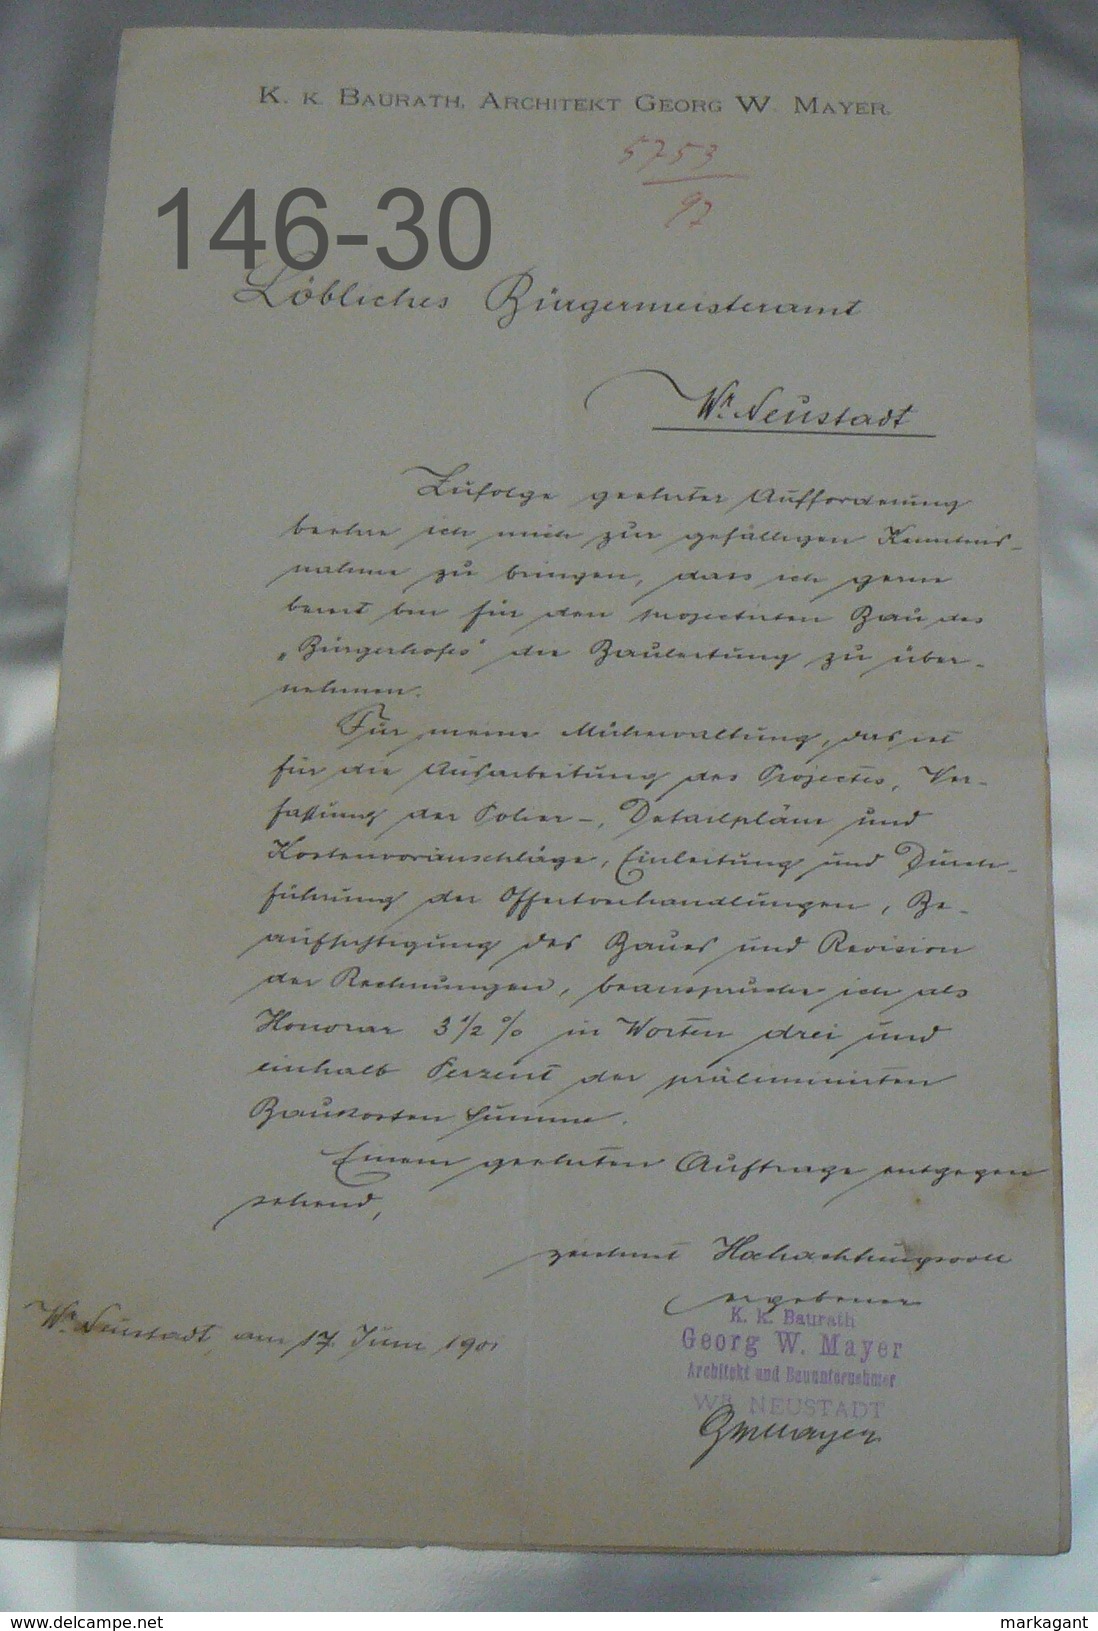 K. K. BAURATH, ARCHITEKT GEORG W. MAYER.
5753
97
146-30
Löbliches Bürgermeisteramt
Wr. Neustadt
Zufolge geehrter Aufforderung
beehre ich mich zur gefälligen Kenntnis-
nahme zu bringen, dass ich gerne
bereit bin für den projectirten Bau des
„Bürgerhofes" die Bauleitung zu über-
nehmen.
Für meine Mühewaltung, das ist
für die Ausarbeitung des Projectes, Ver-
fassung der Polier-, Detailpläne und
Kostenvoranschläge, Einleitung und Durch-
führung der Offertverhandlungen, Be-
aufsichtigung des Baues und Revision
der Rechnungen, beanspruche ich als
Honorar 3 1/2 % in Worten drei und
einhalb Perzent der präliminirten
Baukosten Summe.
Einem geehrten Auftrage entgegen
sehend,
zeichnet Hochachtungsvoll
ergebener
K. k. Baurath
Georg W. Mayer
Architekt und Bauunternehmer
WR. NEUSTADT
GWMayer
Wr. Neustadt, am 17. Juni 1901
www.delcampe.net
markagant